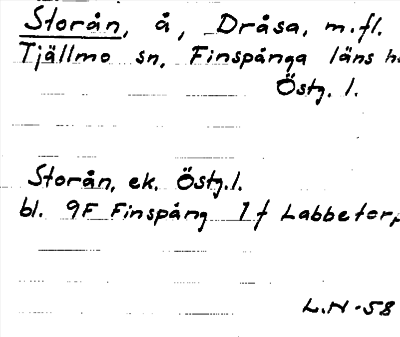 Storån, å, Dråsa, m.fl.
Tjällmo sn, Finspånga läns
Östg. l.
Storån, ek. Östg.l.
bl. 9F Finspång 1f
L.N-58